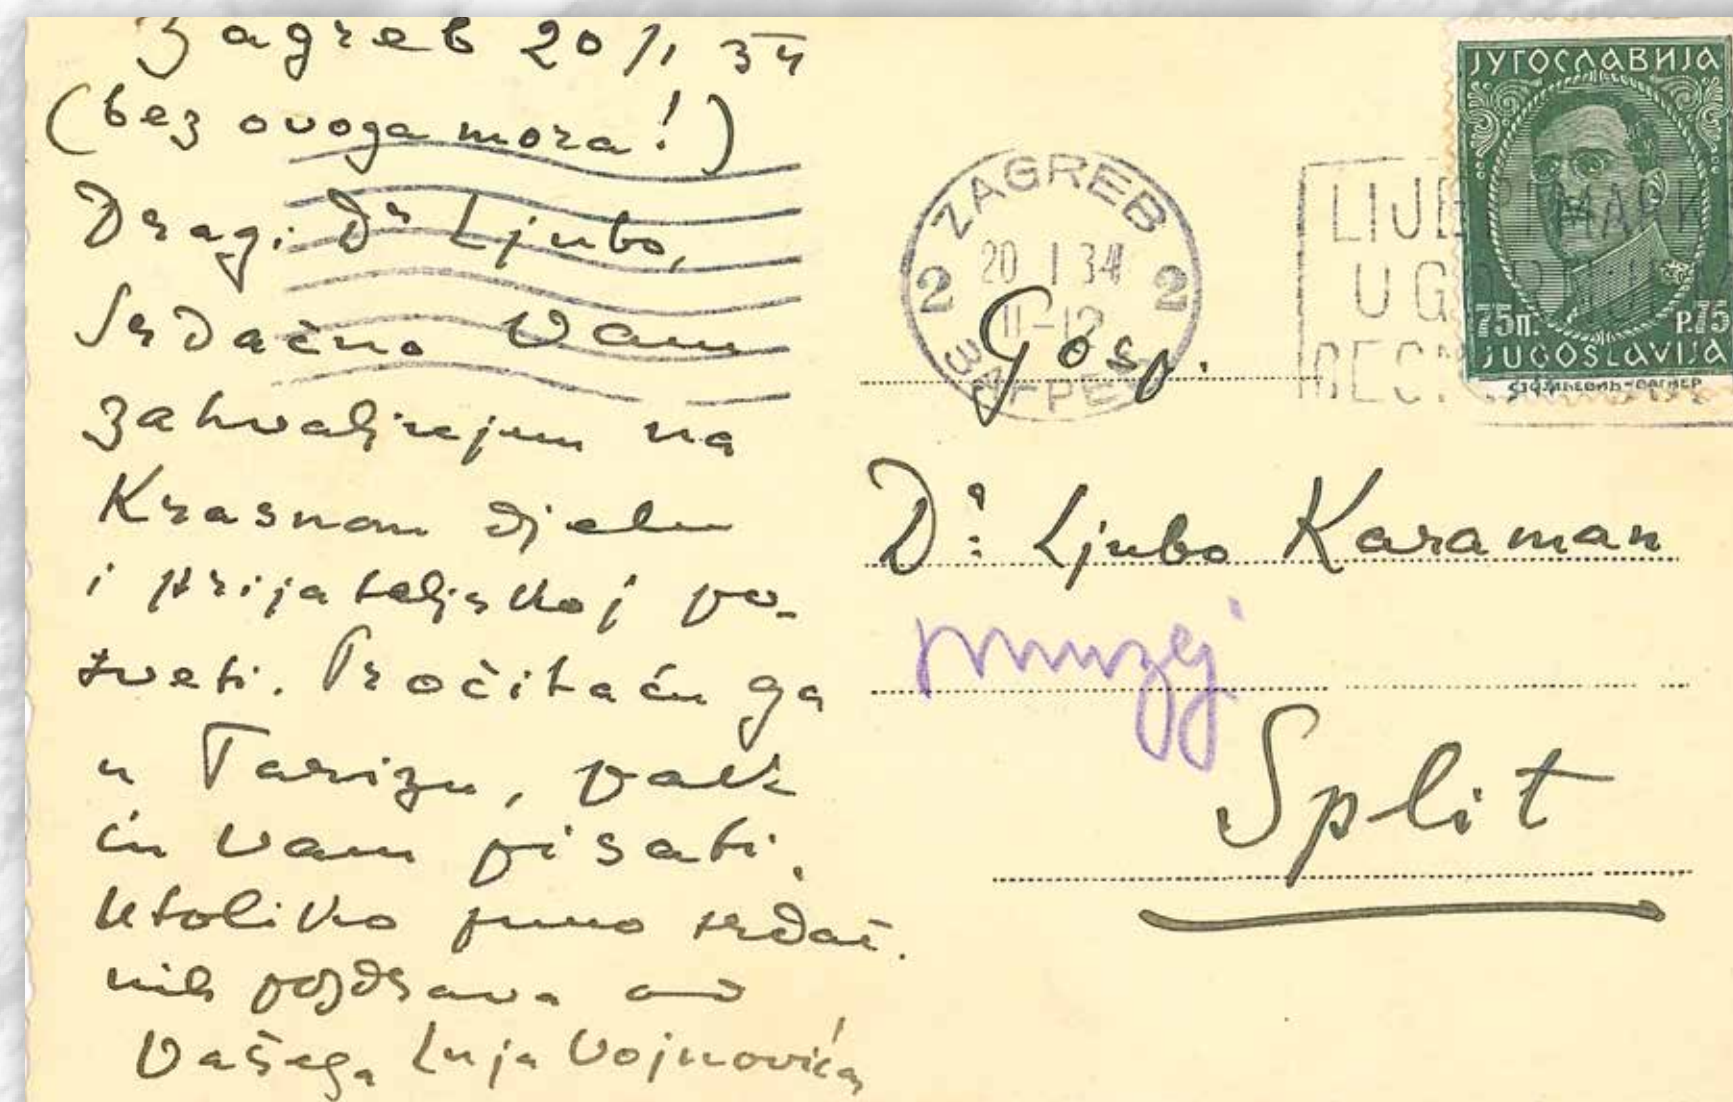 Zagreb 20/1 34
(bez ovoga mora!)
Dragi Dr Ljubo,
Srdačno Vam
zahvaljujem na
Krasnom djelu
i prijateljskoj po-
sveti. Pročitaću ga
u Parizu, pak
ću Vam pisati.
Utoliko puno srdač-
nih pozdrava od
Vašega Luja Vojnovića
ZAGREB
2 20 I 34 2
11-12
ЗАГРЕБ
ЈУГОСЛАВИЈА
75п. P.75
JUGOSLAVIJA
Gosp.
Dr: Ljubo Karaman
muzej
Split